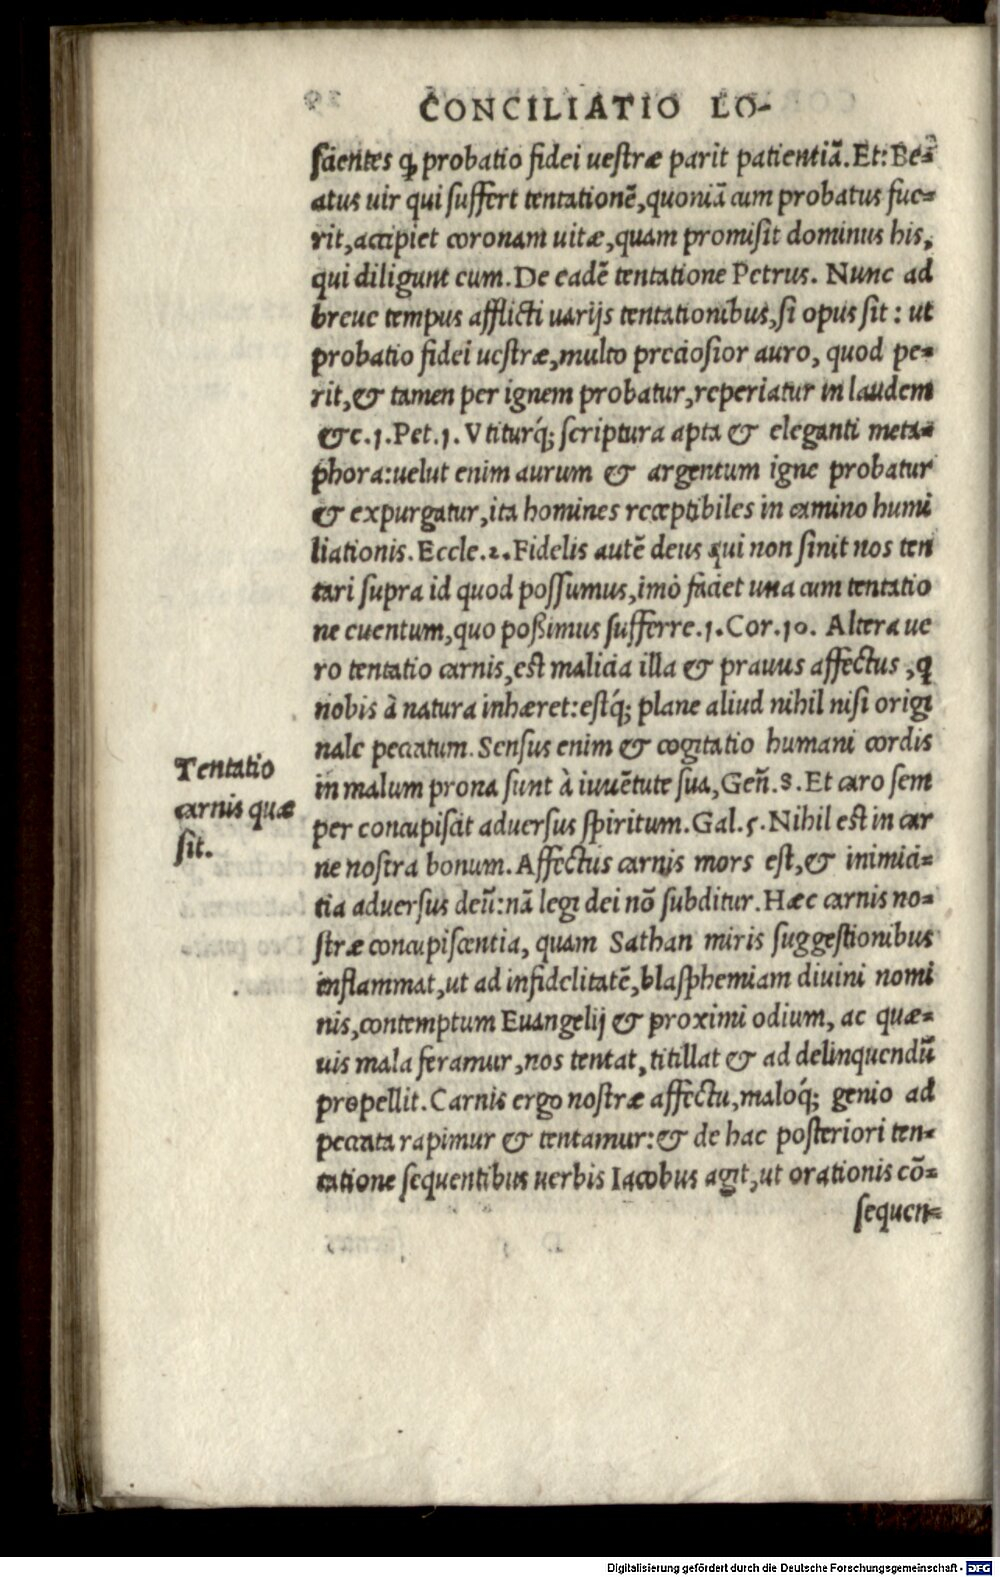 CONCILIATIO LO-
scientes ꝙ probatio fidei uestræ parit patientiã. Et: Be-
atus uir qui suffert tentationẽ, quoniã cum probatus fue-
rit, accipiet coronam uitæ, quam promisit dominus his,
qui diligunt eum. De eadẽ tentatione Petrus. Nunc ad
breue tempus afflicti uarijs tentationibus, si opus sit: ut
probatio fidei uestræ, multo preciosior auro, quod pe-
rit, & tamen per ignem probatur, reperiatur in laudem
&c. 1. Pet. 1. Vtiturq́; scriptura apta & eleganti meta-
phora: uelut enim aurum & argentum igne probatur
& expurgatur, ita homines receptibiles in camino humi
liationis. Eccle. 2. Fidelis autẽ deus qui non sinit nos ten
tari supra id quod possumus, imò faciet una cum tentatio
ne euentum, quo poßimus sufferre. 1. Cor. 10. Altera ue
ro tentatio carnis, est malicia illa & prauus affectus, ꝙ
nobis à natura inhæret: estq́; plane aliud nihil nisi origi
nale peccatum. Sensus enim & cogitatio humani cordis
in malum prona sunt à iuuẽtute sua, Geñ. 8. Et caro sem
per concupiscit aduersus spiritum. Gal. 5. Nihil est in car
ne nostra bonum. Affectus carnis mors est, & inimici-
tia aduersus deũ: nã legi dei nõ subditur. Hæc carnis no-
stræ concupiscentia, quam Sathan miris suggestionibus
inflammat, ut ad infidelitatẽ, blasphemiam diuini nomi
nis, contemptum Euangelij & proximi odium, ac quæ-
uis mala feramur, nos tentat, titillat & ad delinquendũ
propellit. Carnis ergo nostræ affectu, maloq́; genio ad
peccata rapimur & tentamur: & de hac posteriori ten-
tatione sequentibus uerbis Iacobus agit, ut orationis cõ-
sequen-
Tentatio
carnis quæ
sit.
Digitalisierung gefördert durch die Deutsche Forschungsgemeinschaft - DFG